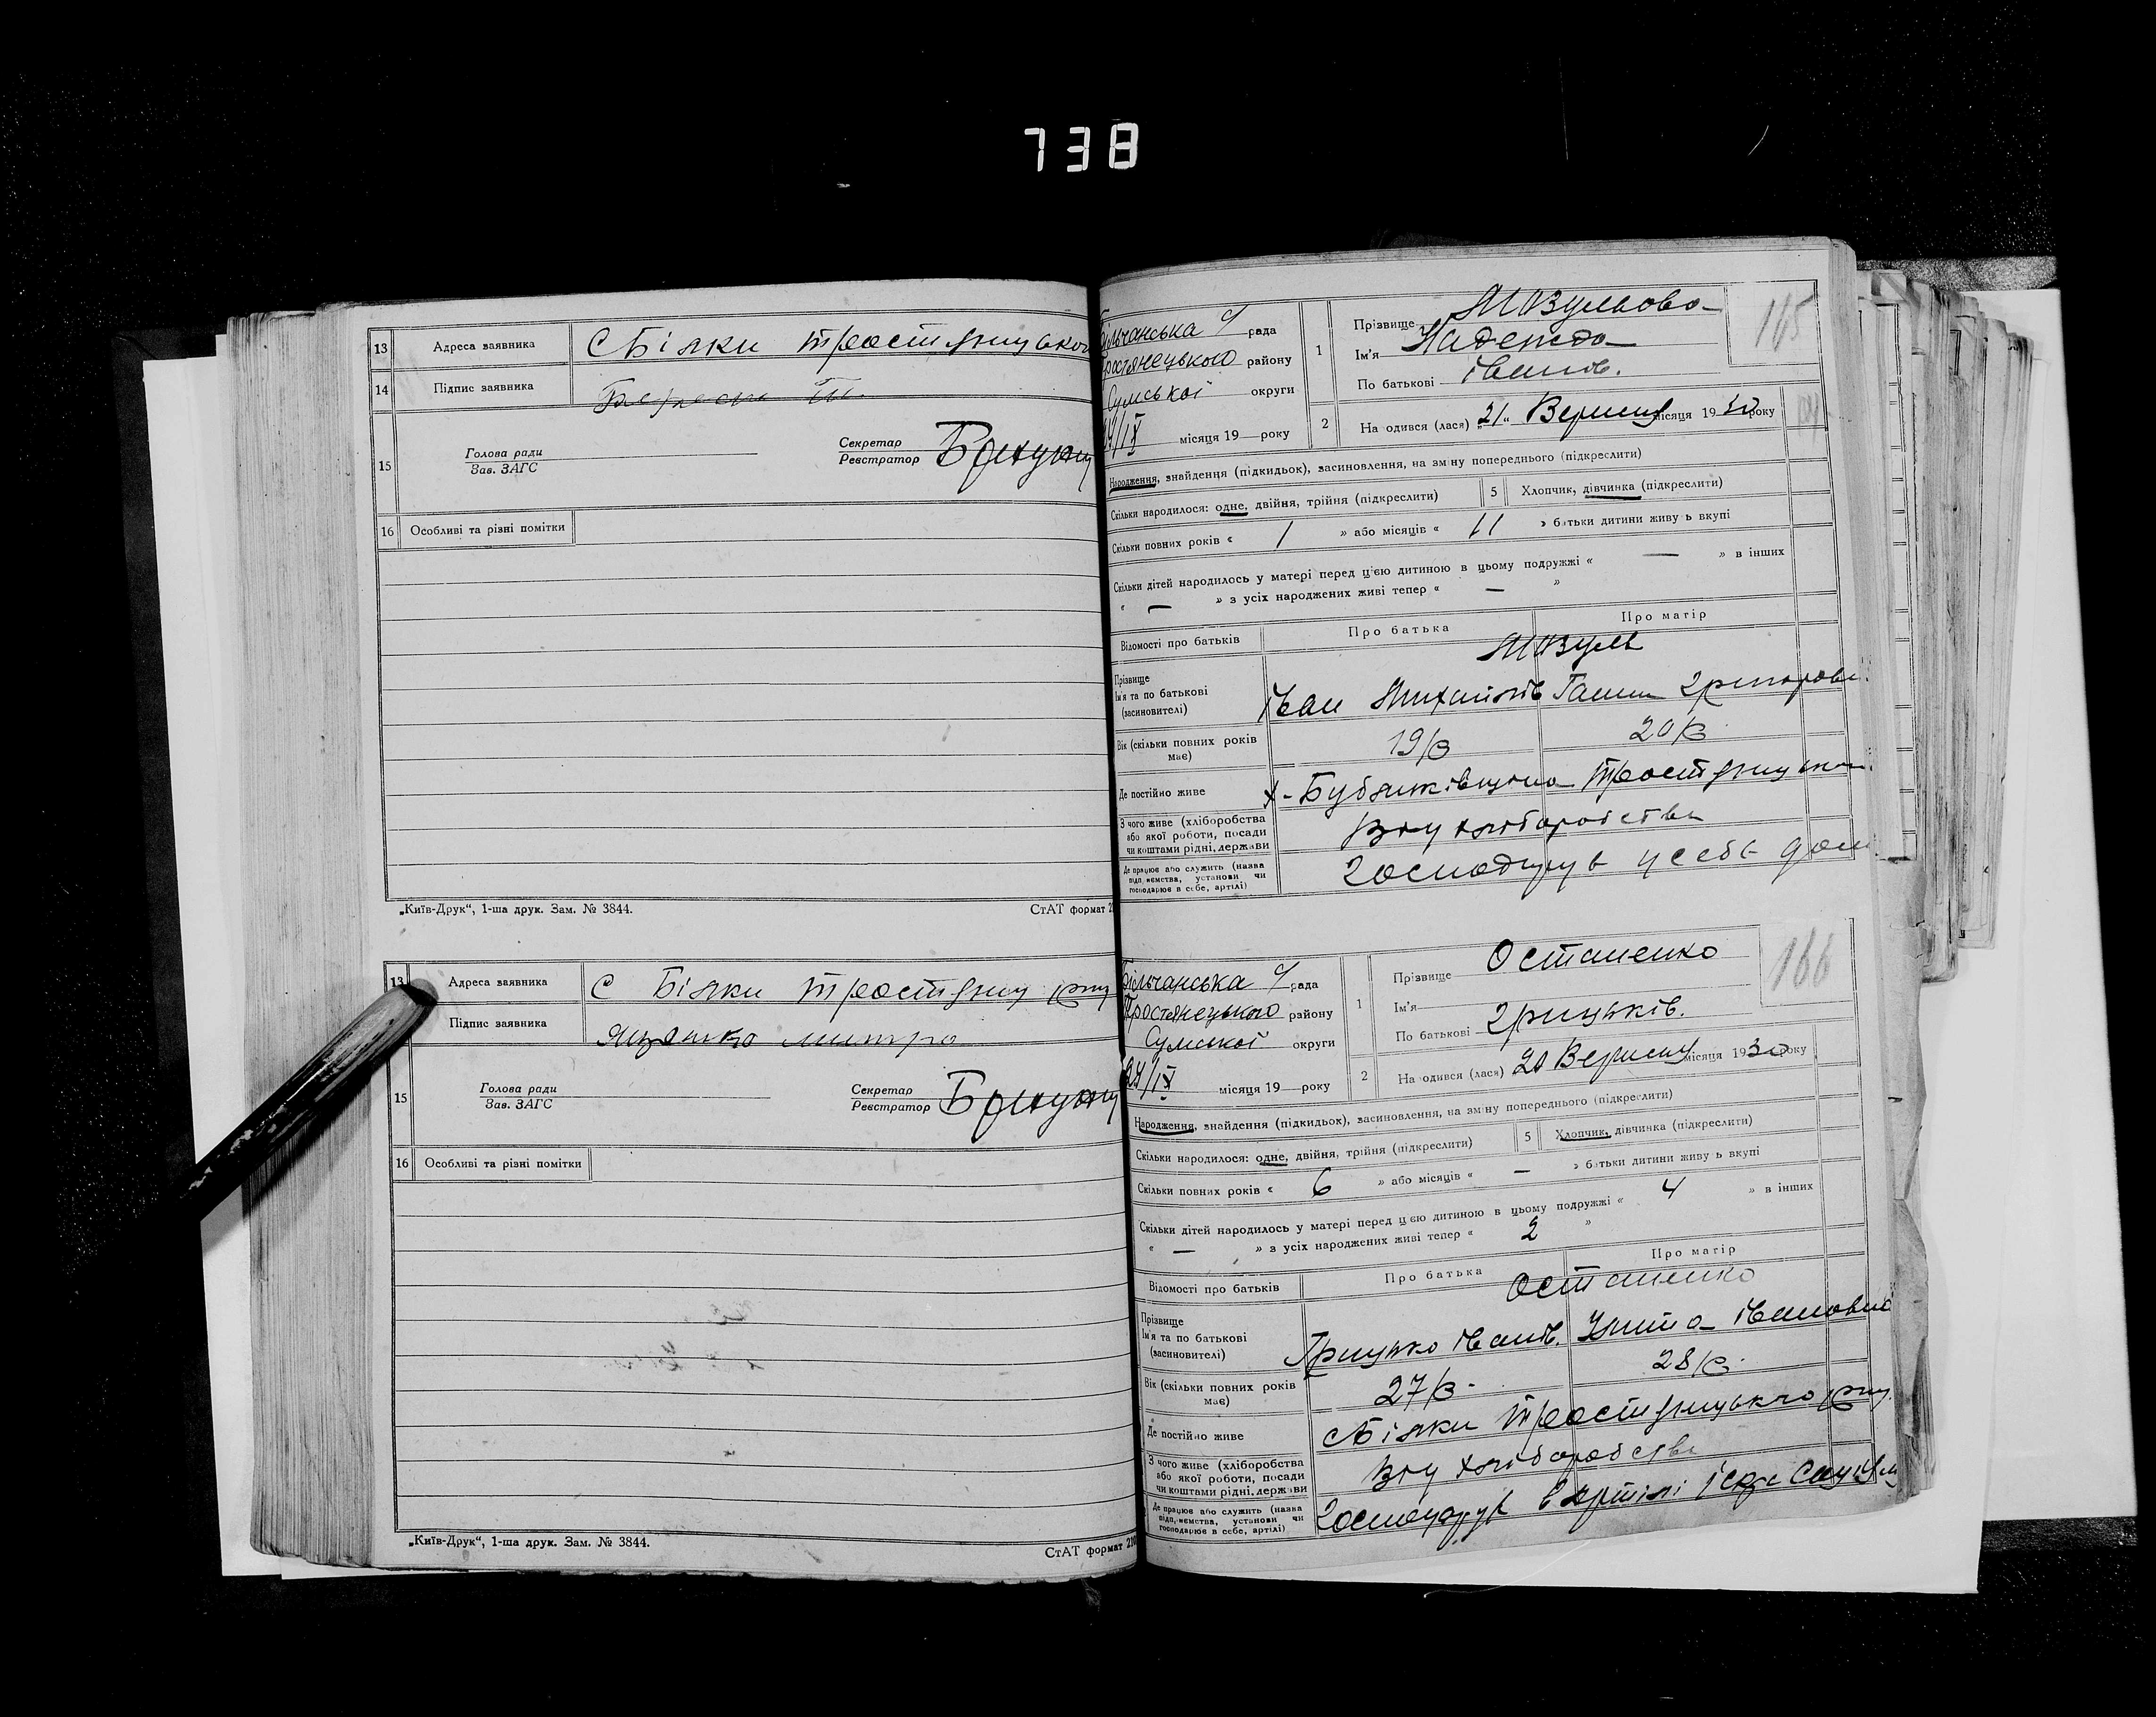 738
13 Адреса заявника С Білки тростянецького
14 Підпис заявника
15 Голова ради Зав. ЗАГС Секретар Реєстратор
16 Особливі та різні помітки
„Київ-Друк“, 1-ша друк. Зам. № 3844. СтАТ формат
13 Адреса заявника С Білки тростянец рну
Підпис заявника
15 Голова ради Зав. ЗАГС Секретар Реєстратор
16 Особливі та різні помітки
„Київ-Друк“, 1-ша друк. Зам. № 3844. СтАТ формат 210
Більчанська С/рада
Тростянецького району
Сумської округи
24/IX місяця 19 — року
165
1 Прізвище Мозульова
Ім'я Надежда
По батькові іванів.
2 На одився (лася) „21“ Вересня місяця 1930 року
Народження, знайдення (підкидьок), засиновлення, на зміну попереднього (підкреслити)
Скільки народилося: одне, двійня, трійня (підкреслити) 5 Хлопчик, дівчинка (підкреслити)
Скільки повних років « 1 » або місяців « 11 » батьки дитини живуть вкупі
Скільки дітей народилось у матері перед цією дитиною в цьому подружжі « — » в інших
« — » з усіх народжених живі тепер « — »
Відомості про батьків Про батька Про матір
Мозуль
Прізвище
Ім'я та по батькові
(засиновителі) Іван Михайлів Ганна григорові
Вік (скільки повних років має) 19/в 20/в
Де постійно живе х-Бубликівщина тростянецьк
З чого живе (хліборобства або якої роботи, посади чи коштами рідні, держави від хліборобства
Де працює або служить (назва підприємства, установи чи господарює в себе, артілі) господарує у себе дом
Більчанська С/рада
Тростянецького району
Сумської округи
24/IX місяця 19 — року
166
1 Прізвище Остапенко
Ім'я
По батькові грицьків.
2 На одився (лася) 20 Вересня місяця 1930 року
Народження, знайдення (підкидьок), засиновлення, на зміну попереднього (підкреслити)
Скільки народилося: одне, двійня, трійня (підкреслити) 5 Хлопчик, дівчинка (підкреслити)
Скільки повних років « 6 » або місяців « — » батьки дитини живуть вкупі
Скільки дітей народилось у матері перед цією дитиною в цьому подружжі « 4 » в інших
« — » з усіх народжених живі тепер « 2 »
Відомості про батьків Про батька Про матір
Остапенко
Прізвище
Ім'я та по батькові
(засиновителі) Грицько іванів. івановна
Вік (скільки повних років має) 27/в. 28/в.
Де постійно живе с Білки тростянецького рну.
З чого живе (хліборобства або якої роботи, посади чи коштами рідні, держави від хліборобства
Де працює або служить (назва підприємства, установи чи господарює в себе, артілі) господарує в артілі